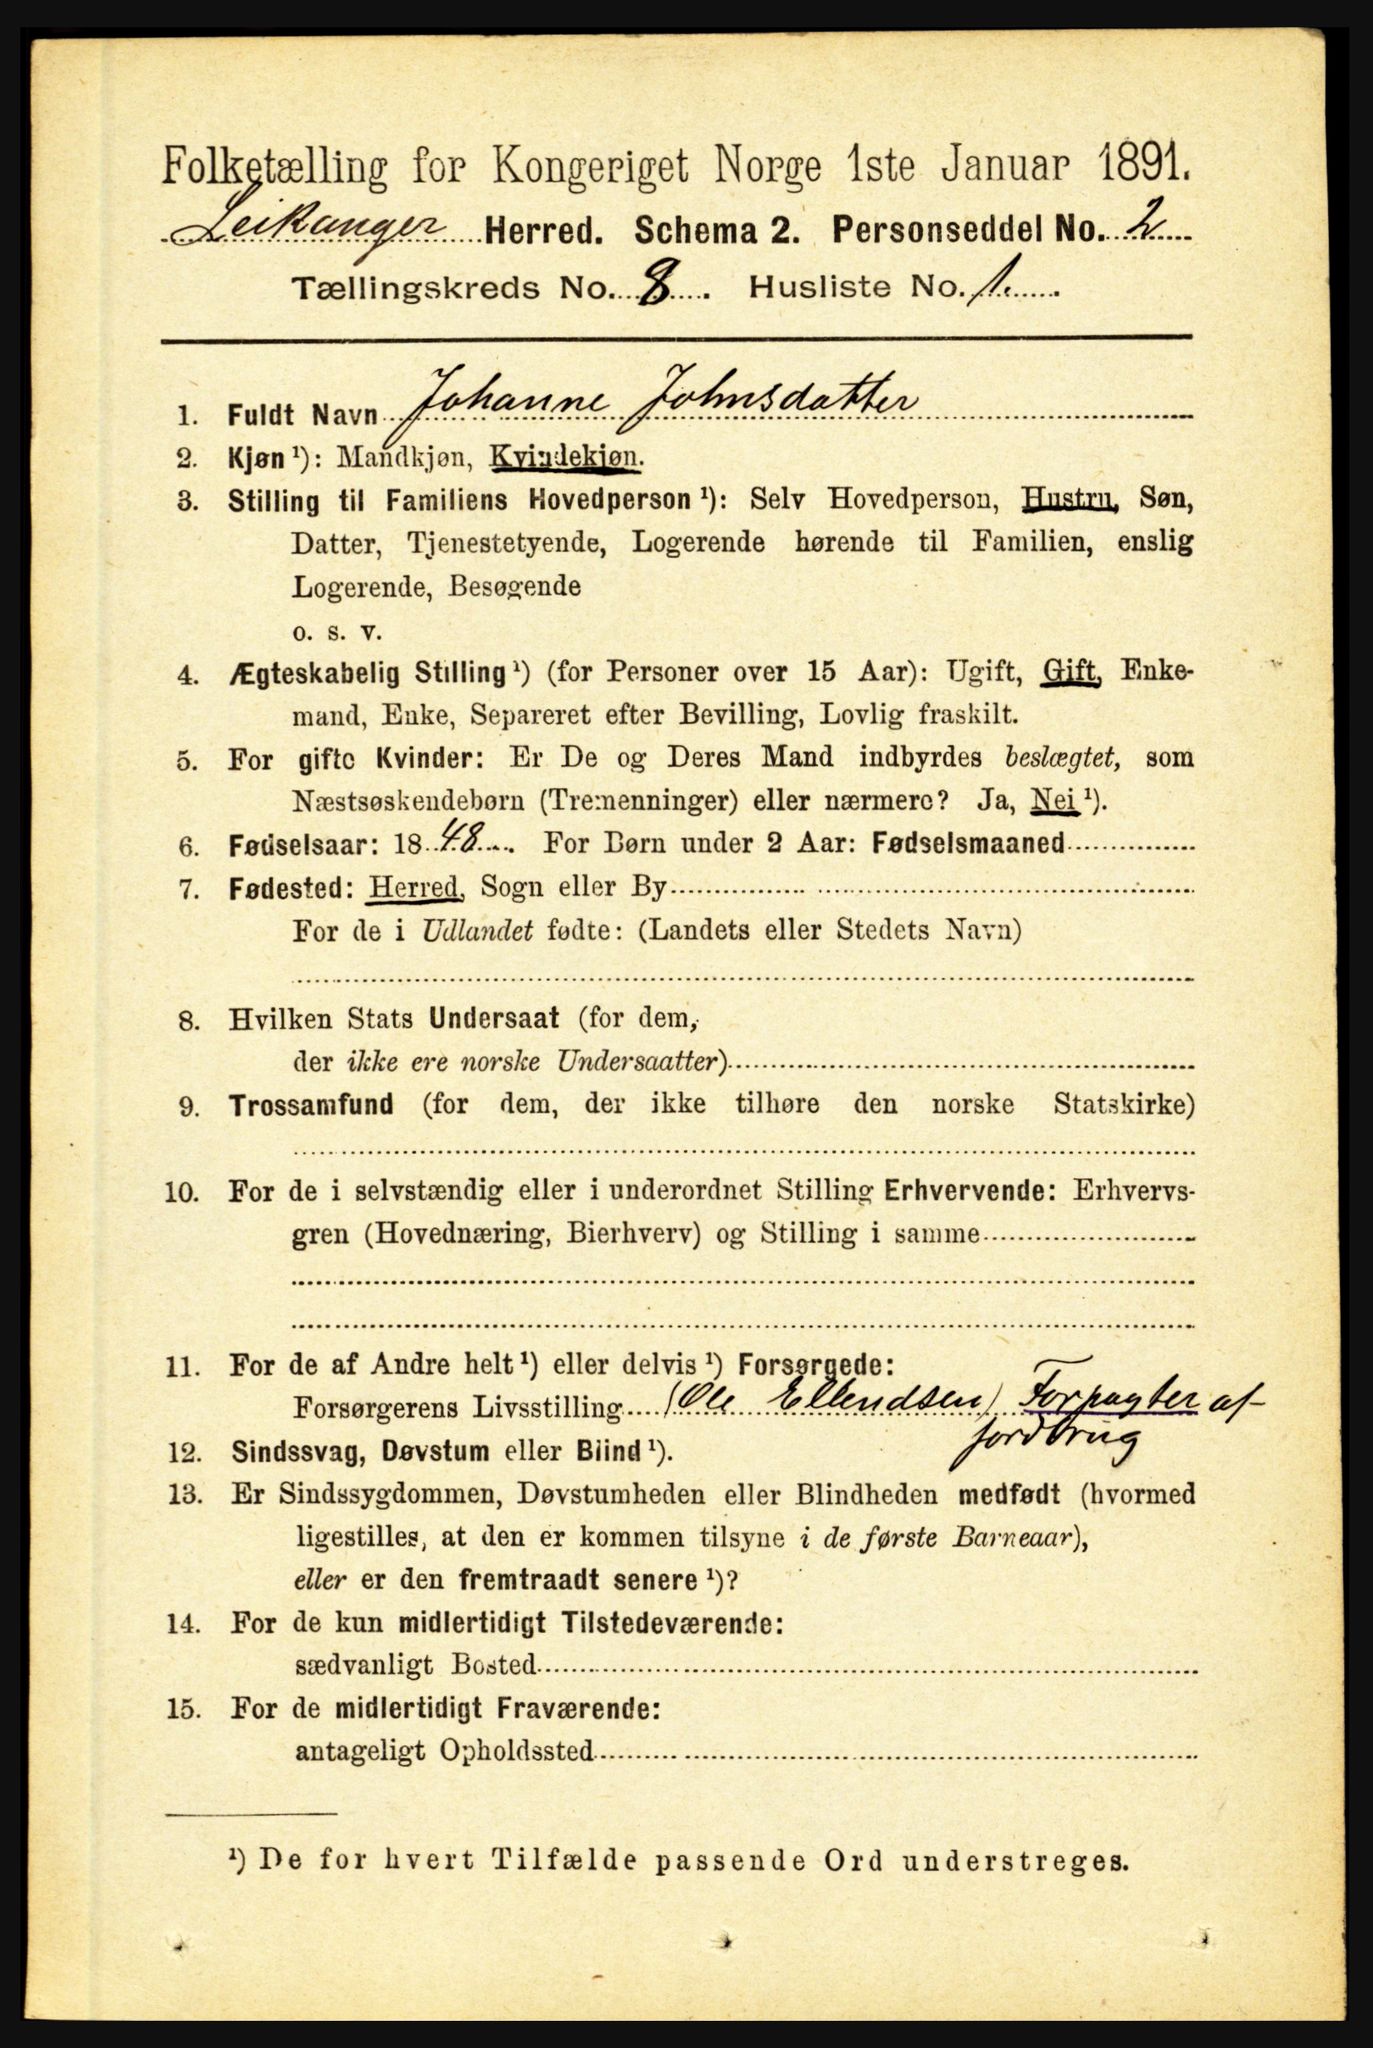 Folketælling for Kongeriget Norge 1ste Januar 1891.
Leikanger Herred. Schema 2. Personseddel No. 2
Tællingskreds No. 8. Husliste No. 1.
1. Fuldt Navn Johanne Johnsdatter
2. Kjøn ¹): Mandkjøn, Kvindekjøn.
3. Stilling til Familiens Hovedperson ¹): Selv Hovedperson, Hustru, Søn,
Datter, Tjenestetyende, Logerende hørende til Familien, enslig
Logerende, Besøgende
o. s. v.
4. Ægteskabelig Stilling ¹) (for Personer over 15 Aar): Ugift, Gift, Enke-
mand, Enke, Separeret efter Bevilling, Lovlig fraskilt.
5. For gifte Kvinder: Er De og Deres Mand indbyrdes beslægtet, som
Næstsøskendebørn (Tremenninger) eller nærmere? Ja, Nei ¹).
6. Fødselsaar: 1848. For Børn under 2 Aar: Fødselsmaaned
7. Fødested: Herred, Sogn eller By
For de i Udlandet fødte: (Landets eller Stedets Navn)
8. Hvilken Stats Undersaat (for dem,
der ikke ere norske Undersaatter)
9. Trossamfund (for dem, der ikke tilhøre den norske Statskirke)
10. For de i selvstændig eller i underordnet Stilling Erhvervende: Erhvervs-
gren (Hovednæring, Bierhverv) og Stilling i samme
11. For de af Andre helt ¹) eller delvis ¹) Forsørgede:
Forsørgerens Livsstilling (Ole Ellendsen) Forpagter af
jordbrug
12. Sindssvag, Døvstum eller Blind ¹).
13. Er Sindssygdommen, Døvstumheden eller Blindheden medfødt (hvormed
ligestilles, at den er kommen tilsyne i de første Barneaar),
eller er den fremtraadt senere ¹)?
14. For de kun midlertidigt Tilstedeværende:
sædvanligt Bosted
15. For de midlertidigt Fraværende:
antageligt Opholdssted
¹) De for hvert Tilfælde passende Ord understreges.